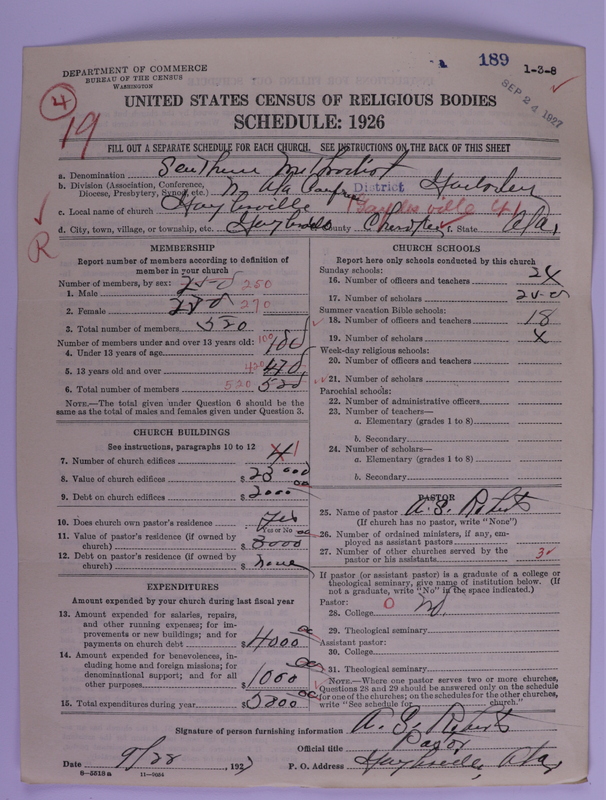 189
1-3-8
DEPARTMENT OF COMMERCE
BUREAU OF THE CENSUS
WASHINGTON
SEP 24 1927
4
19
UNITED STATES CENSUS OF RELIGIOUS BODIES
SCHEDULE: 1926
FILL OUT A SEPARATE SCHEDULE FOR EACH CHURCH. SEE INSTRUCTIONS ON THE BACK OF THIS SHEET
a. Denomination Southern Methodist
b. Division (Association, Conference, Diocese, Presbytery, Synod, etc.) N. Ala District
c. Local name of church
d. City, town, village, or township, etc. County Cherokee f. State Ala,
R
MEMBERSHIP
Report number of members according to definition of
member in your church
Number of members, by sex:
1. Male 250 250
2. Female 270 270
3. Total number of members 520
Number of members under and over 13 years old:
4. Under 13 years of age 100 100
5. 13 years old and over 420
6. Total number of members 520 520
NOTE.—The total given under Question 6 should be the
same as the total of males and females given under Question 3.
CHURCH BUILDINGS
See instructions, paragraphs 10 to 12
7. Number of church edifices 4 1
8. Value of church edifices $ 23000
9. Debt on church edifices $ 2000 00
10. Does church own pastor's residence Yes
Yes or No
11. Value of pastor's residence (if owned by
church) $ 3000 00
12. Debt on pastor's residence (if owned by
church) $ none
EXPENDITURES
Amount expended by your church during last fiscal year
13. Amount expended for salaries, repairs,
and other running expenses; for im-
provements or new buildings; and for
payments on church debt $ 4000 00
14. Amount expended for benevolences, in-
cluding home and foreign missions; for
denominational support; and for all
other purposes $ 1000 00
15. Total expenditures during year $ 5000 00
CHURCH SCHOOLS
Report here only schools conducted by this church
Sunday schools:
16. Number of officers and teachers 24
17. Number of scholars 250
Summer vacation Bible schools:
18. Number of officers and teachers 18
19. Number of scholars X
Week-day religious schools:
20. Number of officers and teachers
21. Number of scholars
Parochial schools:
22. Number of administrative officers
23. Number of teachers—
a. Elementary (grades 1 to 8)
b. Secondary
24. Number of scholars—
a. Elementary (grades 1 to 8)
b. Secondary
PASTOR
25. Name of pastor
(If church has no pastor, write "None")
26. Number of ordained ministers, if any, em-
ployed as assistant pastors
27. Number of other churches served by the
pastor or his assistants 3
If pastor (or assistant pastor) is a graduate of a college or
theological seminary, give name of institution below. (If
not a graduate, write "No" in the space indicated.)
Pastor:
28. College 0 no
29. Theological seminary
Assistant pastor:
30. College
31. Theological seminary
NOTE.—Where one pastor serves two or more churches,
Questions 28 and 29 should be answered only on the schedule
for one of the churches; on the schedules for the other churches,
write "See schedule for church."
Signature of person furnishing information
Official title Pastor
Date 9/22, 1927
P. O. Address Ala,
8—5518 a 11—9054